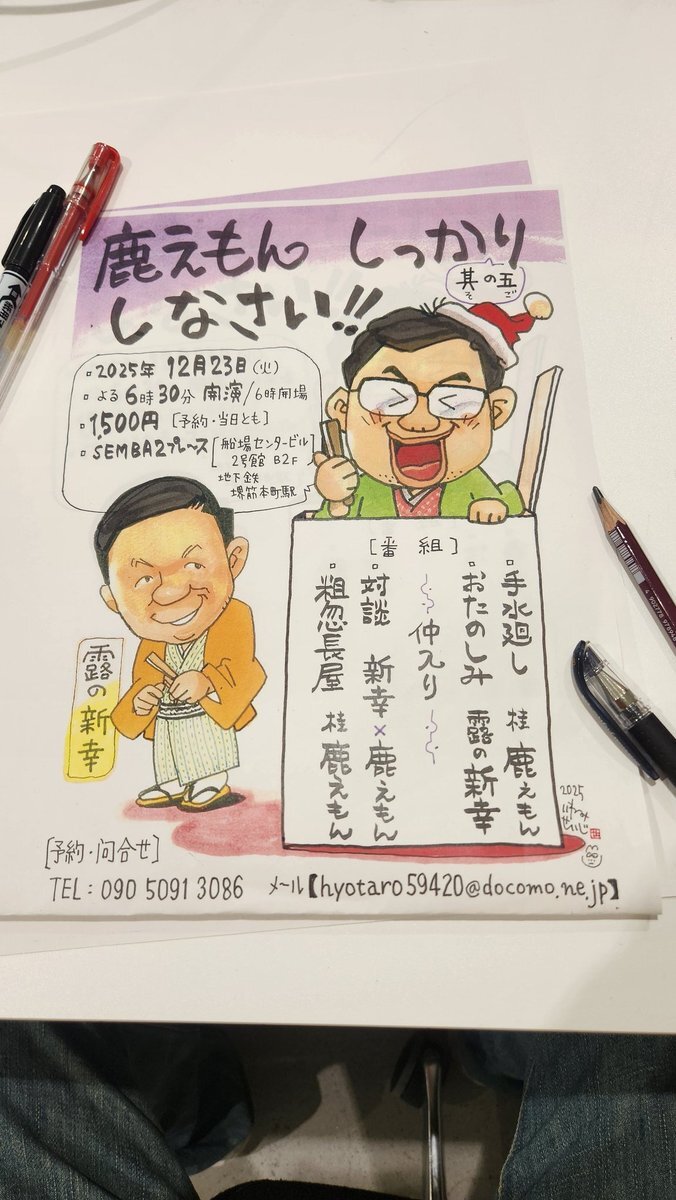 鹿えもん しっかり
しなさい!!
其の五
そ ご
▫2025年 12月23日(火)
▫よる6時30分 開演/6時開場
▫1,500円 [予約・当日とも]
▫SEMBA2プレース [船場センタービル]
2号館 B2F
地下鉄
堺筋本町駅
露の新幸
[番組]
▫手水廻し 桂 鹿えもん
▫おたのしみ 露の新幸
仲入り
▫対談 新幸×鹿えもん
▫粗忽長屋 桂 鹿えもん
2025
[予約・問合せ]
TEL: 090 5091 3086 メール【hyotaro59420@docomo.ne.jp】